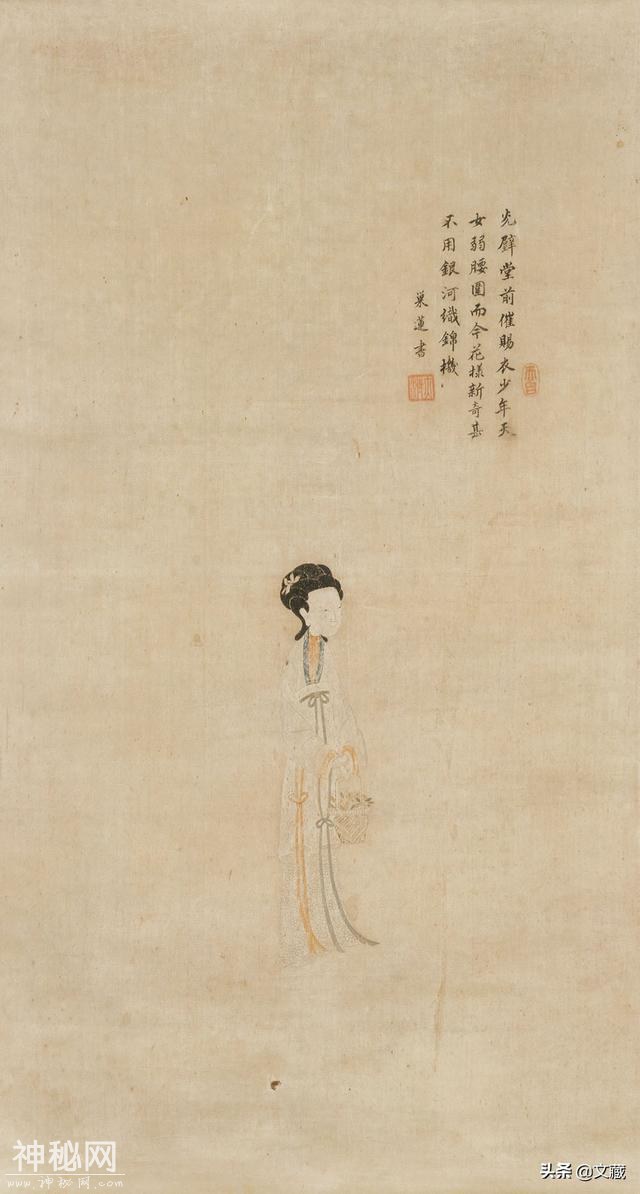 光壁堂前催賜衣少年天
女弱腰圍而今花樣新奇甚
不用銀河織錦機
巢蓮書
神秘网
www.神秘网.com
头条 @文藏